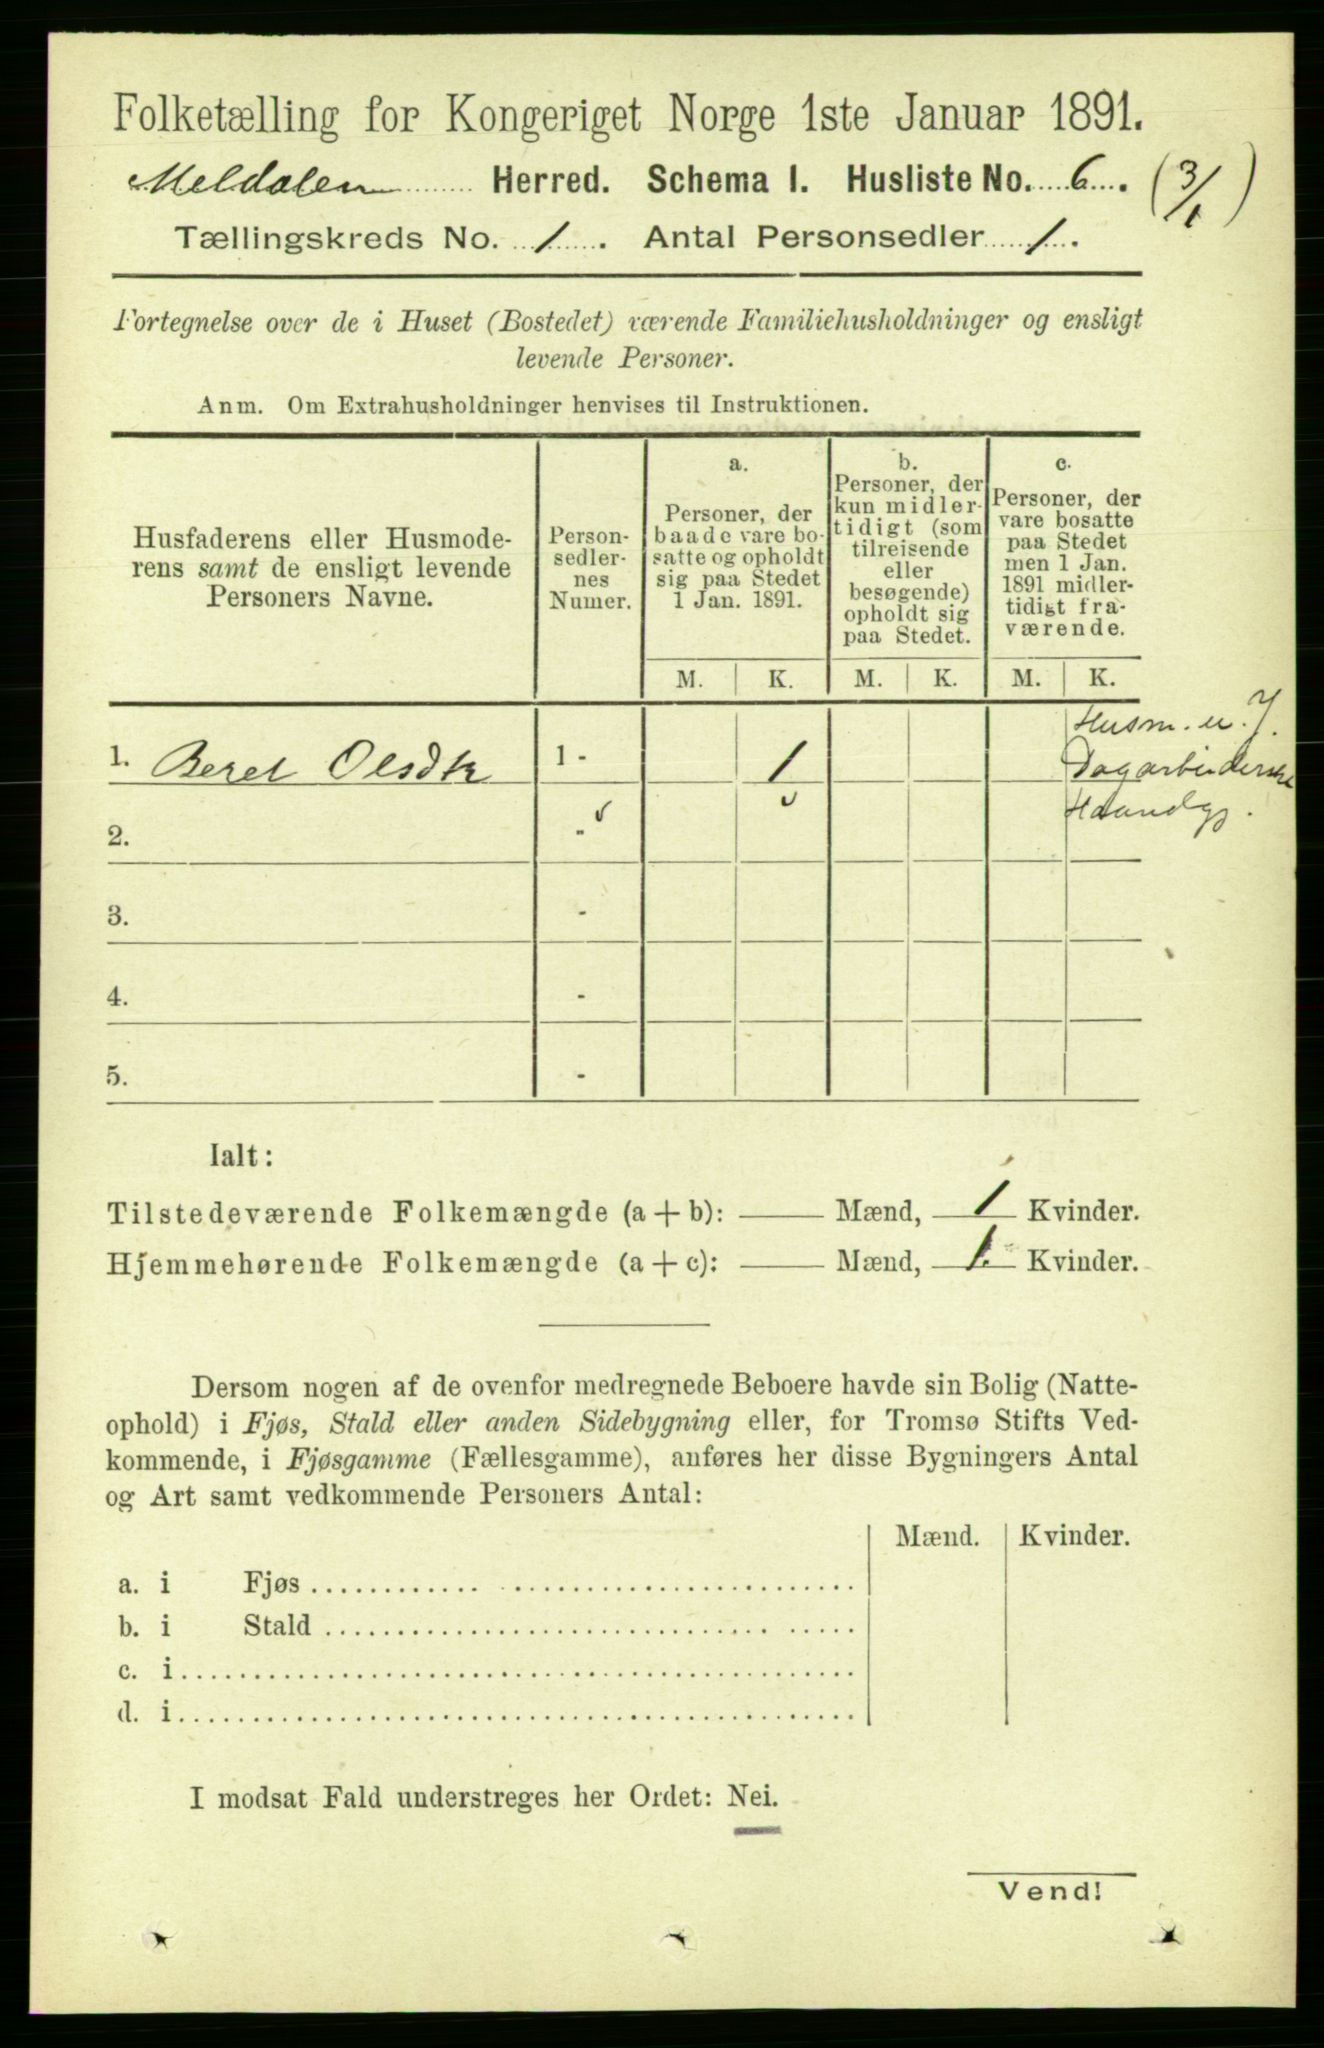 Folketælling for Kongeriget Norge 1ste Januar 1891.
Meldalen Herred. Schema 1. Husliste No. 6. (3/1)
Tællingskreds No. 1. Antal Personsedler 1.
Fortegnelse over de i Huset (Bostedet) værende Familiehusholdninger og ensligt
levende Personer.
Anm. Om Extrahusholdninger henvises til Instruktionen.
Husfaderens eller Husmode-
rens samt de ensligt levende
Personers Navne.
Person-
sedler-
nes
Numer.
a.
Personer, der
baade vare bo-
satte og opholdt
sig paa Stedet
1 Jan. 1891.
b.
Personer, der
kun midler-
tidigt (som
tilreisende
eller
besøgende)
opholdt sig
paa Stedet.
c.
Personer, der
vare bosatte
paa Stedet
men 1 Jan.
1891 midler-
tidigt fra-
værende.
M. K. M. K. M. K.
Husm. u. J.
1. Beret Olsdtr 1 - 1 Dagarbeiderske
Haandgj.
2. -
3. -
4. -
5. -
Ialt:
Tilstedeværende Folkemængde (a + b): — Mænd, 1 Kvinder.
Hjemmehørende Folkemængde (a + c): — Mænd, 1. Kvinder.
Dersom nogen af de ovenfor medregnede Beboere havde sin Bolig (Natte-
ophold) i Fjøs, Stald eller anden Sidebygning eller, for Tromsø Stifts Ved-
kommende, i Fjøsgamme (Fællesgamme), anføres her disse Bygningers Antal
og Art samt vedkommende Personers Antal:
Mænd. Kvinder.
a. i Fjøs
b. i Stald
c. i
d. i
I modsat Fald understreges her Ordet: Nei.
Vend!